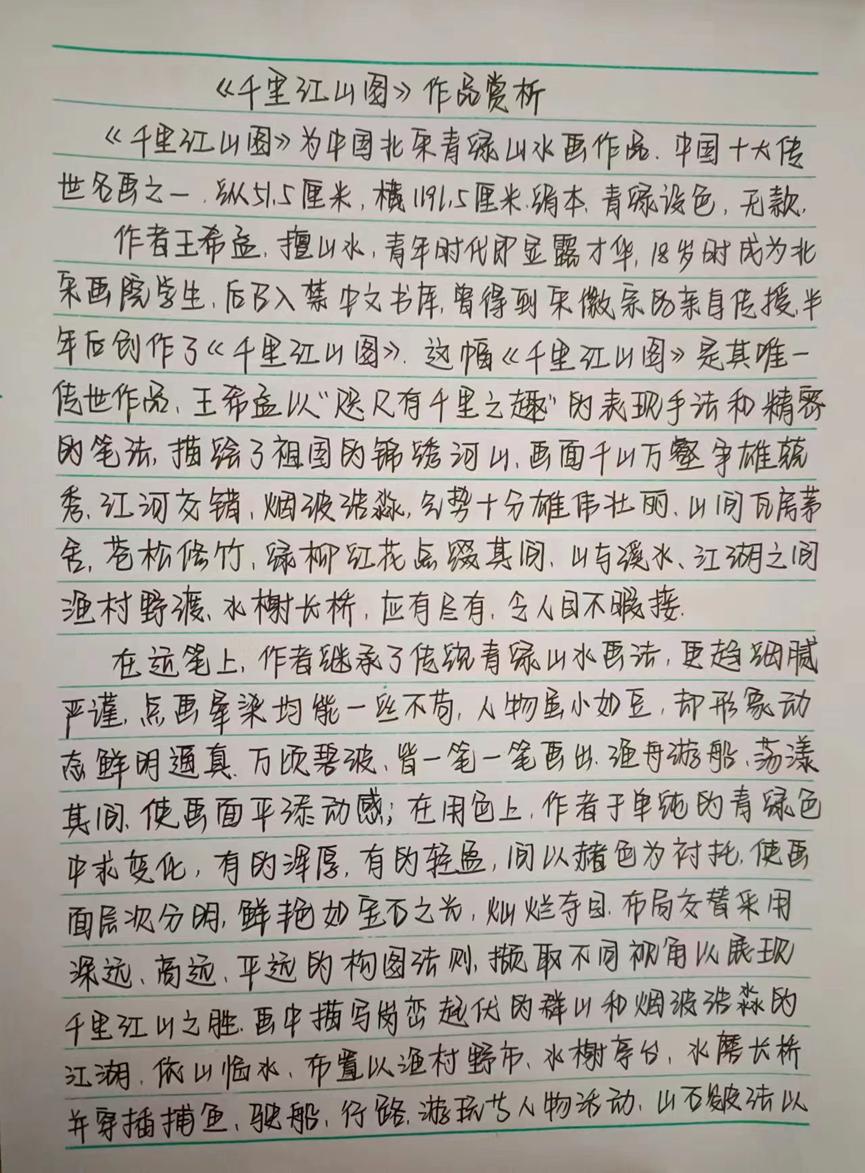 《千里江山图》作品赏析
《千里江山图》为中国北宋青绿山水画作品.中国十大传
世名画之一.纵51.5厘米,横1191.5厘米.绢本.青绿设色,无款.
作者王希孟,擅山水,青年时代即显露才华,18岁时成为北
宋画院学生,后召入禁中文书库,曾得到宋徽宗的亲自传授,半
年后创作了《千里江山图》.这幅《千里江山图》是其唯一
传世作品.王希孟以"咫尺有千里之趣"的表现手法和精密
的笔法,描绘了祖国的锦绣河山.画面千山万壑争雄竞
秀.江河交错,烟波浩淼,气势十分雄伟壮丽.山间瓦房茅
舍,苍松修竹,绿柳红花点缀其间.山与溪水、江湖之间
渔村野渡、水榭长桥,应有尽有,令人目不暇接.
在运笔上,作者继承了传统青绿山水画法,更趋细腻
严谨,点画晕染均能一丝不苟,人物虽小如豆,却形象动
态鲜明逼真.万顷碧波,皆一笔一笔画出.渔舟游船、荡漾
其间.使画面平添动感;在用色上,作者于单纯的青绿色
中求变化,有的浑厚,有的轻盈,间以赭色为衬托,使画
面层次分明,鲜艳如宝石之光,灿烂夺目.布局交替采用
深远、高远、平远的构图法则,撷取不同视角以展现
千里江山之胜.画中描写岗峦起伏的群山和烟波浩淼的
江湖.依山临水,布置以渔村野市、水榭亭台,水磨长桥
并穿插捕鱼、驶船,行路,游玩等人物活动.山石皴法以